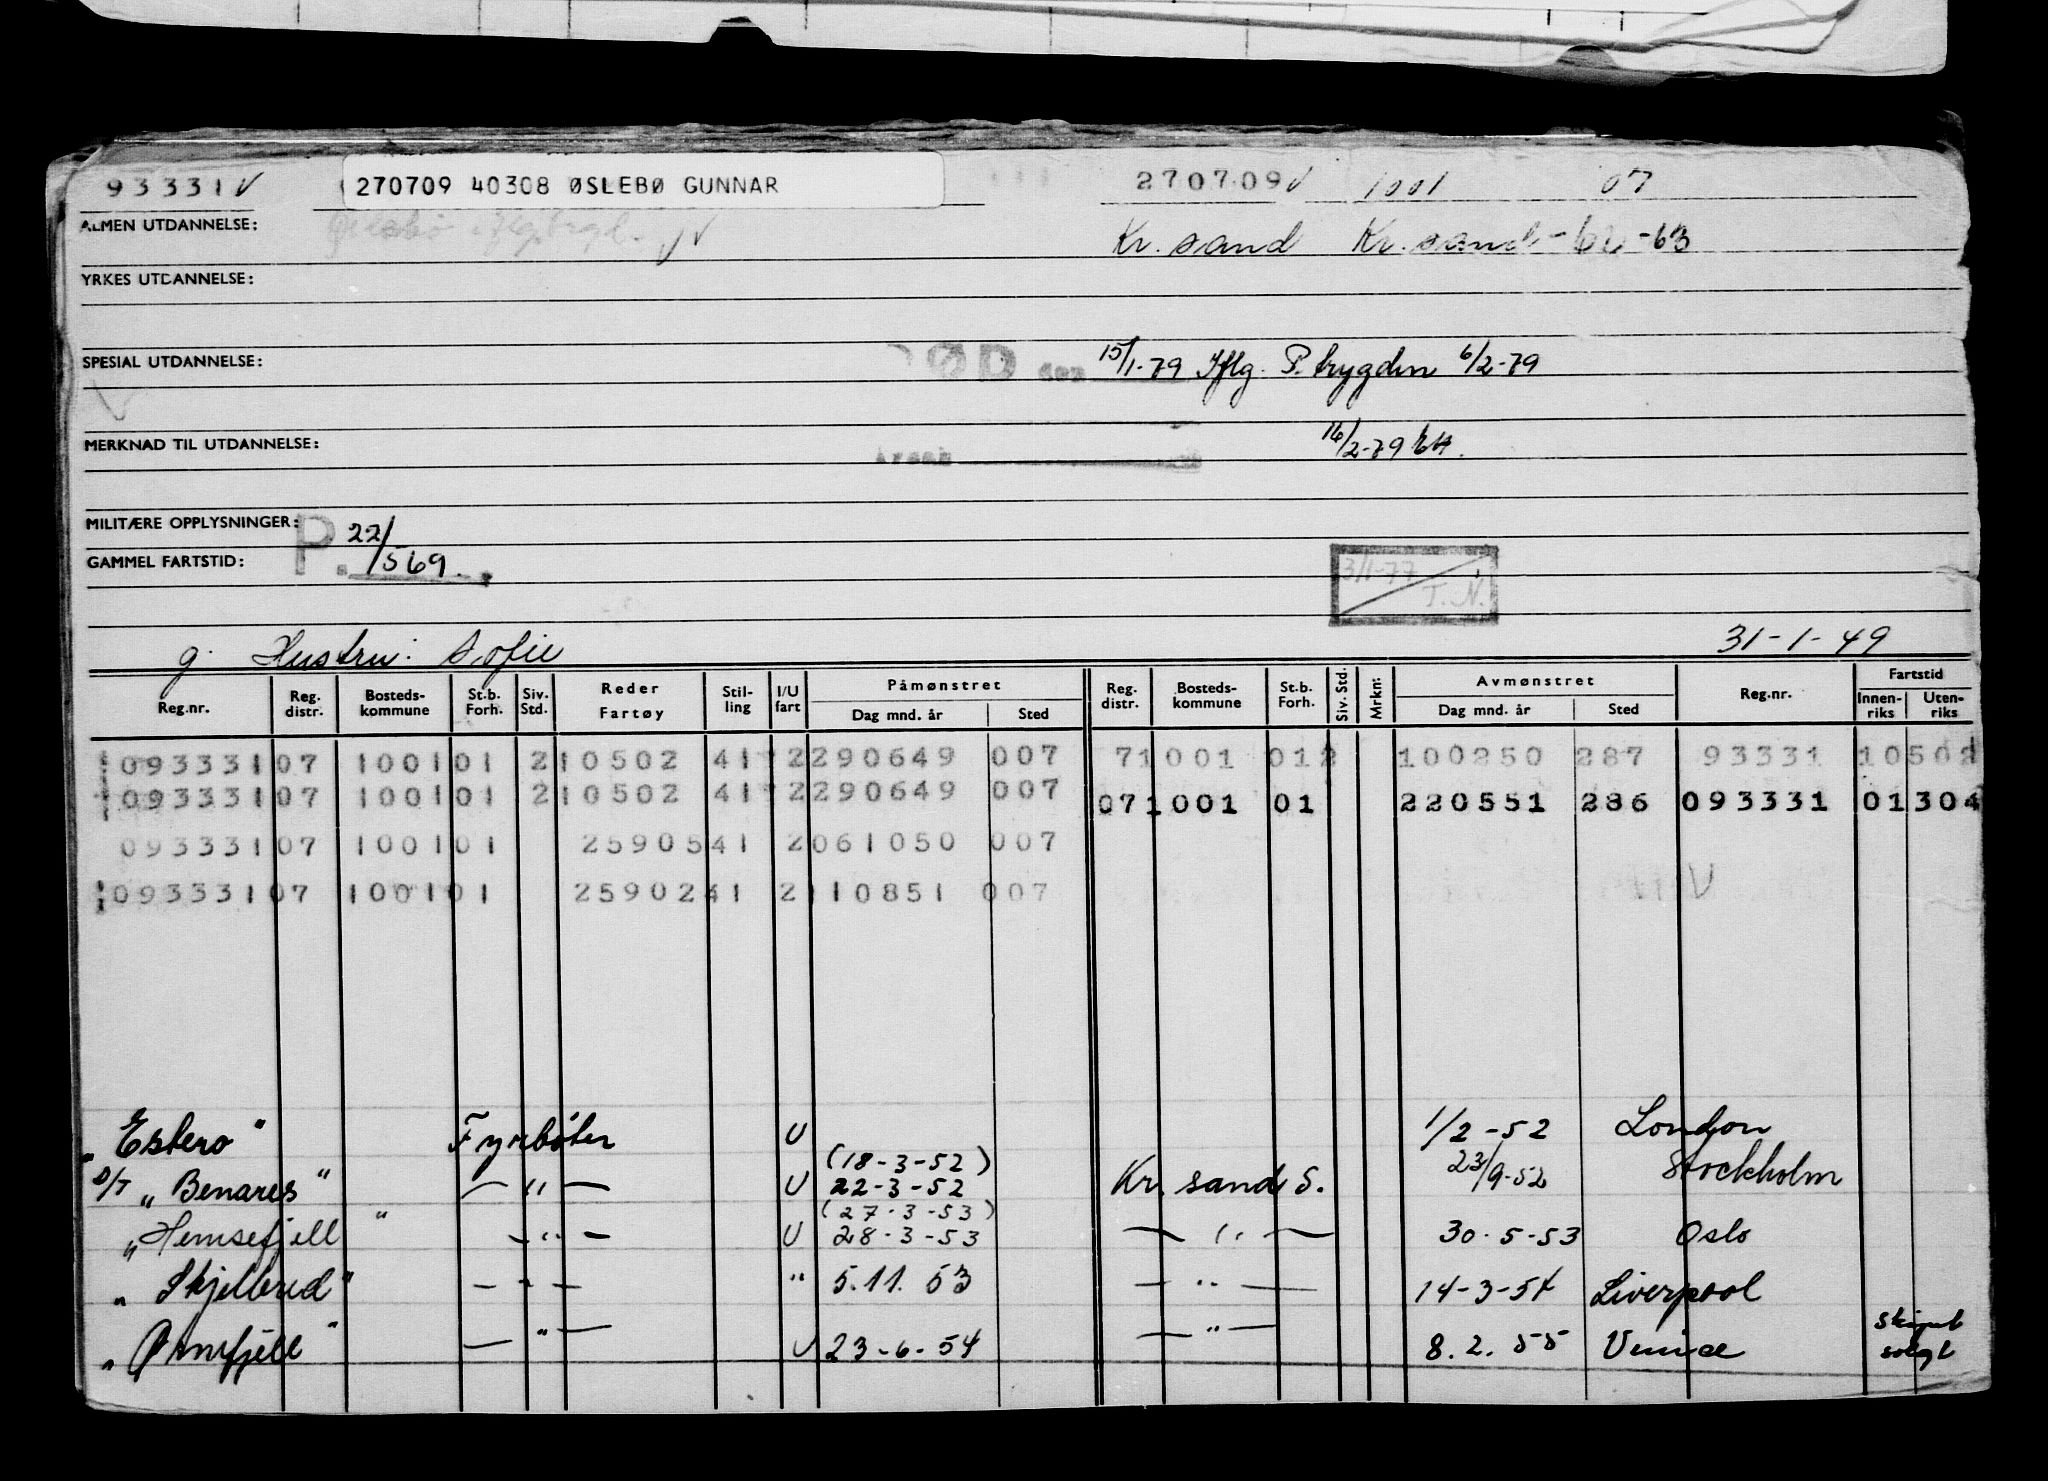 93331 V 270709 40308 ØSLEBØ GUNNAR 270709 V 1001 07
ALMEN UTDANNELSE: Kr. sand Kr. sand - 62 - 63
YRKES UTDANNELSE:
SPESIAL UTDANNELSE: ØD den 15/1-79 Iflg. P. trygden 6/2-79
MERKNAD TIL UTDANNELSE: 16/2-79
MILITÆRE OPPLYSNINGER: P. 22/569.
GAMMEL FARTSTID: 3/1-77 T. N.
g. Hustru: Sofie 31-1-49
Reg.nr. Reg. distr. Bosteds- kommune St.b. Forh. Siv. Std. Reder Fartøy Stil- ling I/U fart Påmønstret Dag mnd. år Sted Reg. distr. Bosteds- kommune St.b. Forh. Siv. Std. Mrkn: Avmønstret Dag mnd. år Sted Reg.nr. Fartstid Innen- riks Uten- riks
093331 07 1001 01 2 10502 41 2 290649 007 7 1001 01 2 100250 287 93331 10502
093331 07 1001 01 2 10502 41 2 290649 007 07 1001 01 220551 286 093331 01304
093331 07 1001 01 25905 41 2 061050 007
093331 07 1001 01 25902 41 2 110851 007 V
"Estero" Fyrbøter U 1/2-52 London
(18-3-52)
D/T "Benares" — " — U 22-3-52 Kr. sand S. 23/9-52 Stockholm
(27-3-53)
"Hemsefjell" — " — U 28-3-53 — " — 30-5-53 Oslo
"Skjelbred" — " — " 5.11.53 — " — 14-3-54 Liverpool
"Ørnefjell" — " — U 23-6-54 — " — 8.2.55 Venice Skipet solgt